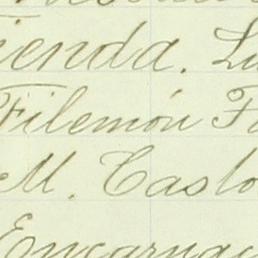 ienda. Lu
Filemón F
M. Casto
Encarnac